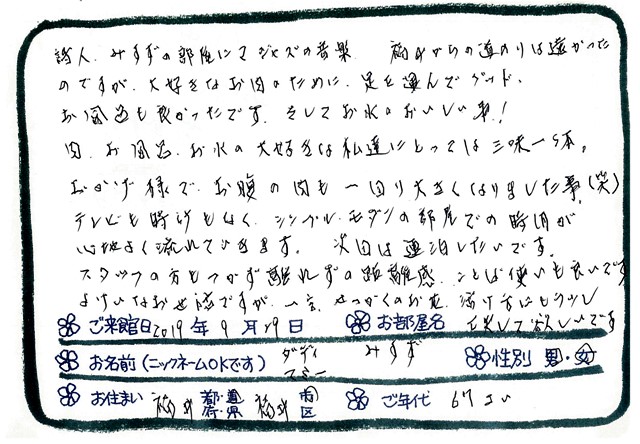 詩人、みすずの部屋にてジャズの音楽 福井からの道のりは遠かった
のですが、大好きなお肉のために、足を運んでグッド、
お風呂も良かったです。そしてお水のおいしい事!
肉、お風呂、お水の大好きな私達にとっては三味一体。
おかげ様で、お腹の肉も一回り大きくなりました事(笑)
テレビも時計もなく、シンプル、モダンの部屋での時間が
心地よく流れていきます。次回は連泊したいです。
スタッフの方もつかず離れずの距離感、ことば使いも良いです
よけいなお世話ですが、一言、せっかくのお花、活け方にもう少し
工夫して欲しいです
ご来館日 2019年 9月 29日 お部屋名 みすず
お名前(ニックネームOKです) ダディ マミー 性別 男・女
お住まい 福井 都・道 府・県 福井 市 区 ご年代 67さい